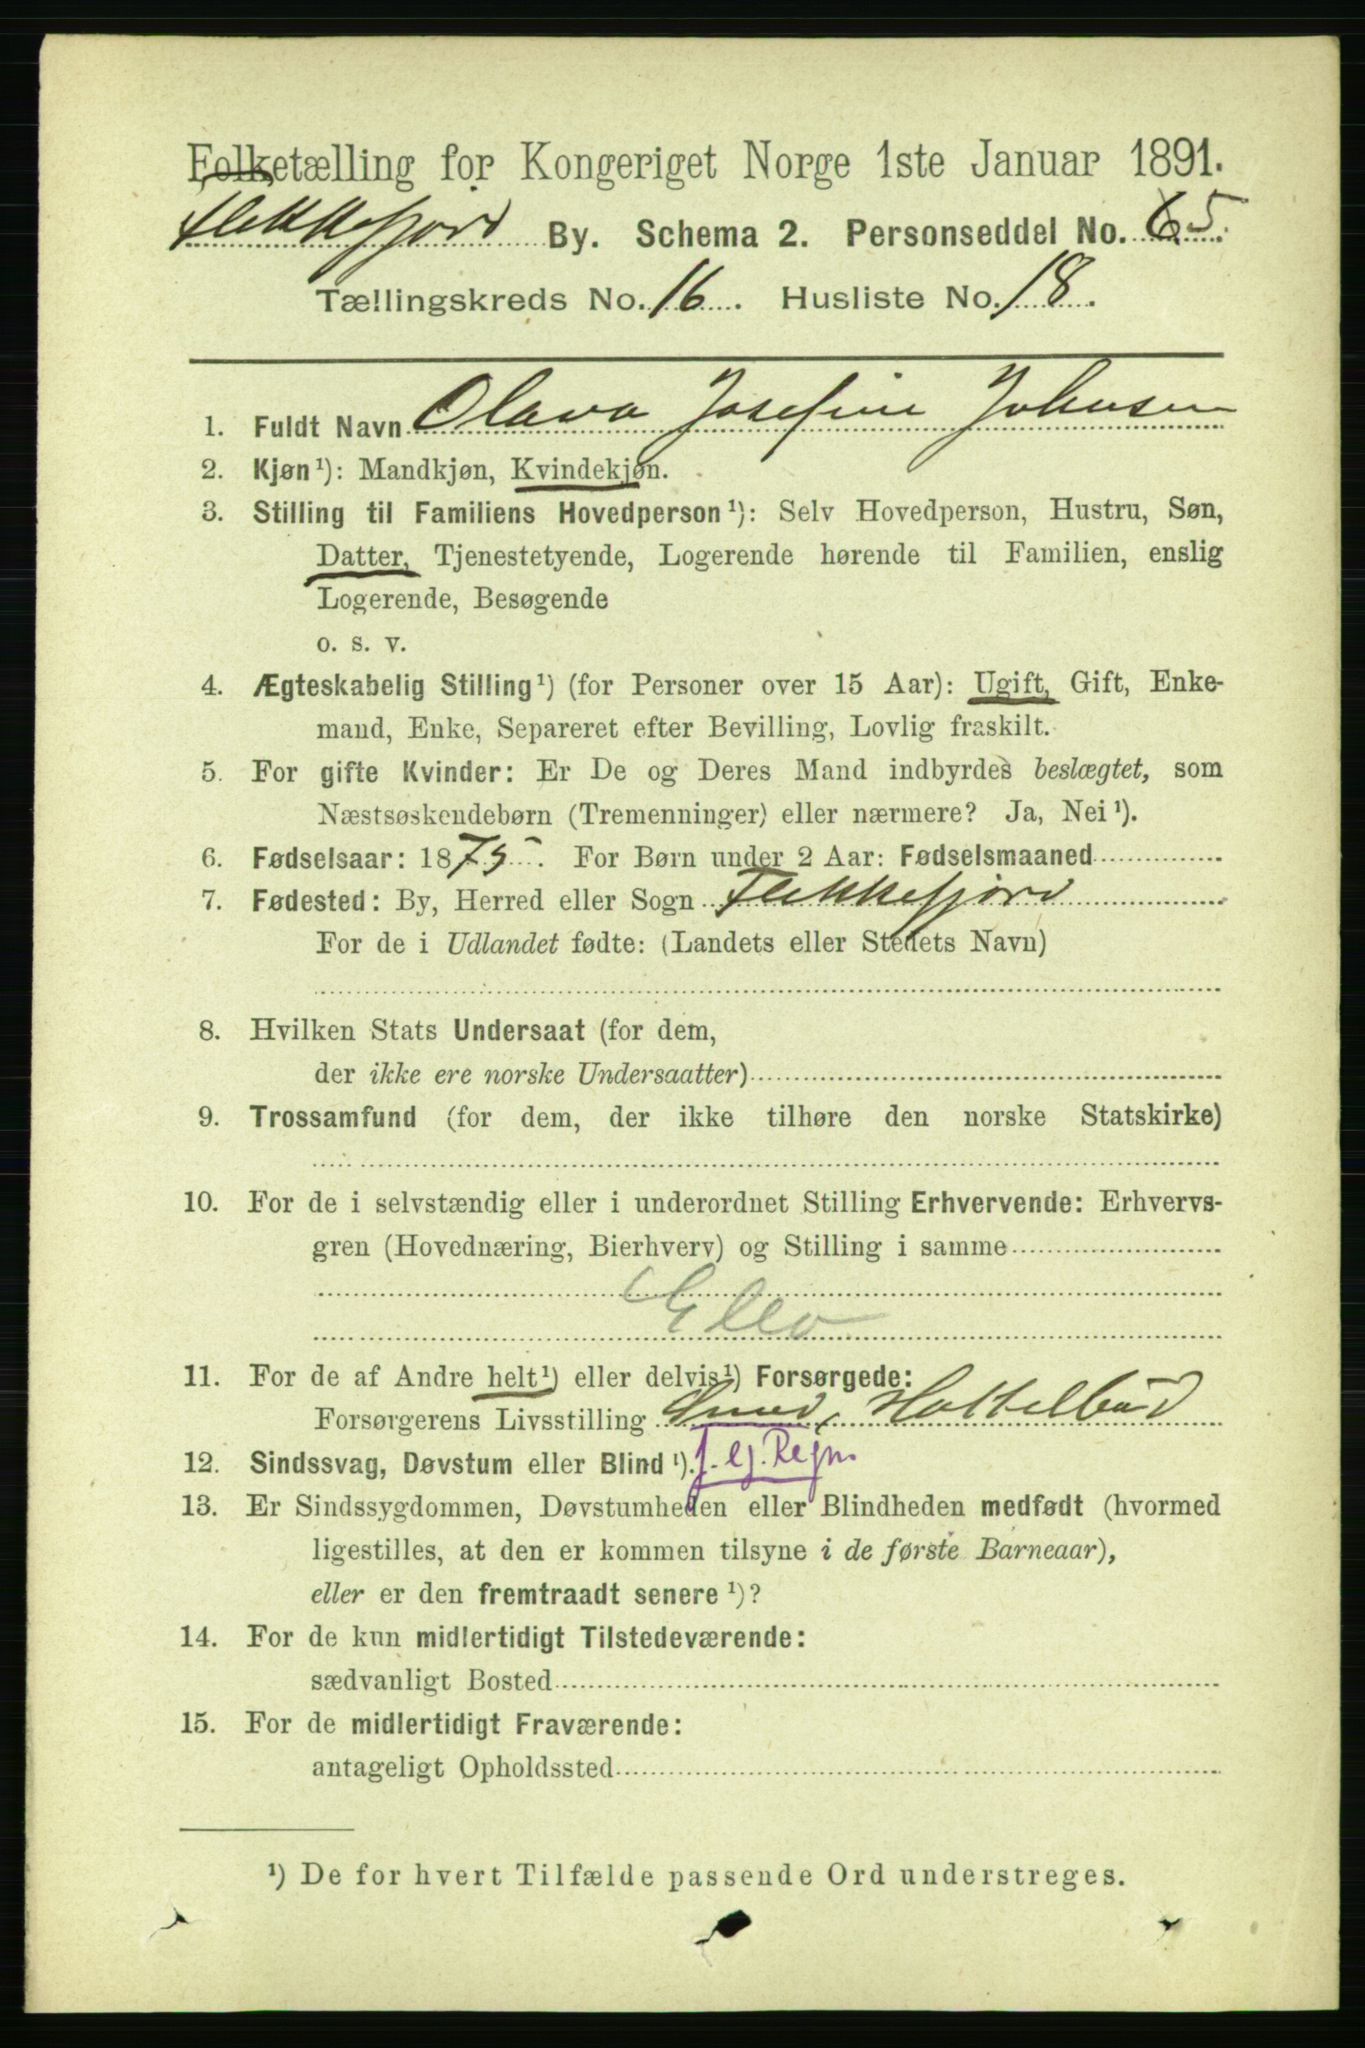 Folketælling for Kongeriget Norge 1ste Januar 1891.
Flekkefjord By. Schema 2. Personseddel No. 65.
Tællingskreds No. 16. Husliste No. 18.
1. Fuldt Navn Olava Josefine Johnsen
2. Kjøn ¹): Mandkjøn, Kvindekjøn.
3. Stilling til Familiens Hovedperson ¹): Selv Hovedperson, Hustru, Søn,
Datter, Tjenestetyende, Logerende hørende til Familien, enslig
Logerende, Besøgende
o. s. v.
4. Ægteskabelig Stilling ¹) (for Personer over 15 Aar): Ugift, Gift, Enke-
mand, Enke, Separeret efter Bevilling, Lovlig fraskilt.
5. For gifte Kvinder: Er De og Deres Mand indbyrdes beslægtet, som
Næstsøskendebørn (Tremenninger) eller nærmere? Ja, Nei ¹).
6. Fødselsaar: 1875. For Børn under 2 Aar: Fødselsmaaned
7. Fødested: By, Herred eller Sogn Flekkefjord
For de i Udlandet fødte: (Landets eller Stedets Navn)
8. Hvilken Stats Undersaat (for dem,
der ikke ere norske Undersaatter)
9. Trossamfund (for dem, der ikke tilhøre den norske Statskirke)
10. For de i selvstændig eller i underordnet Stilling Erhvervende: Erhvervs-
gren (Hovednæring, Bierhverv) og Stilling i samme
Elev
11. For de af Andre helt ¹) eller delvis ¹) Forsørgede:
Forsørgerens Livsstilling
12. Sindssvag, Døvstum eller Blind ¹).
13. Er Sindssygdommen, Døvstumheden eller Blindheden medfødt (hvormed
ligestilles, at den er kommen tilsyne i de første Barneaar),
eller er den fremtraadt senere ¹)?
14. For de kun midlertidigt Tilstedeværende:
sædvanligt Bosted
15. For de midlertidigt Fraværende:
antageligt Opholdssted
¹) De for hvert Tilfælde passende Ord understreges.